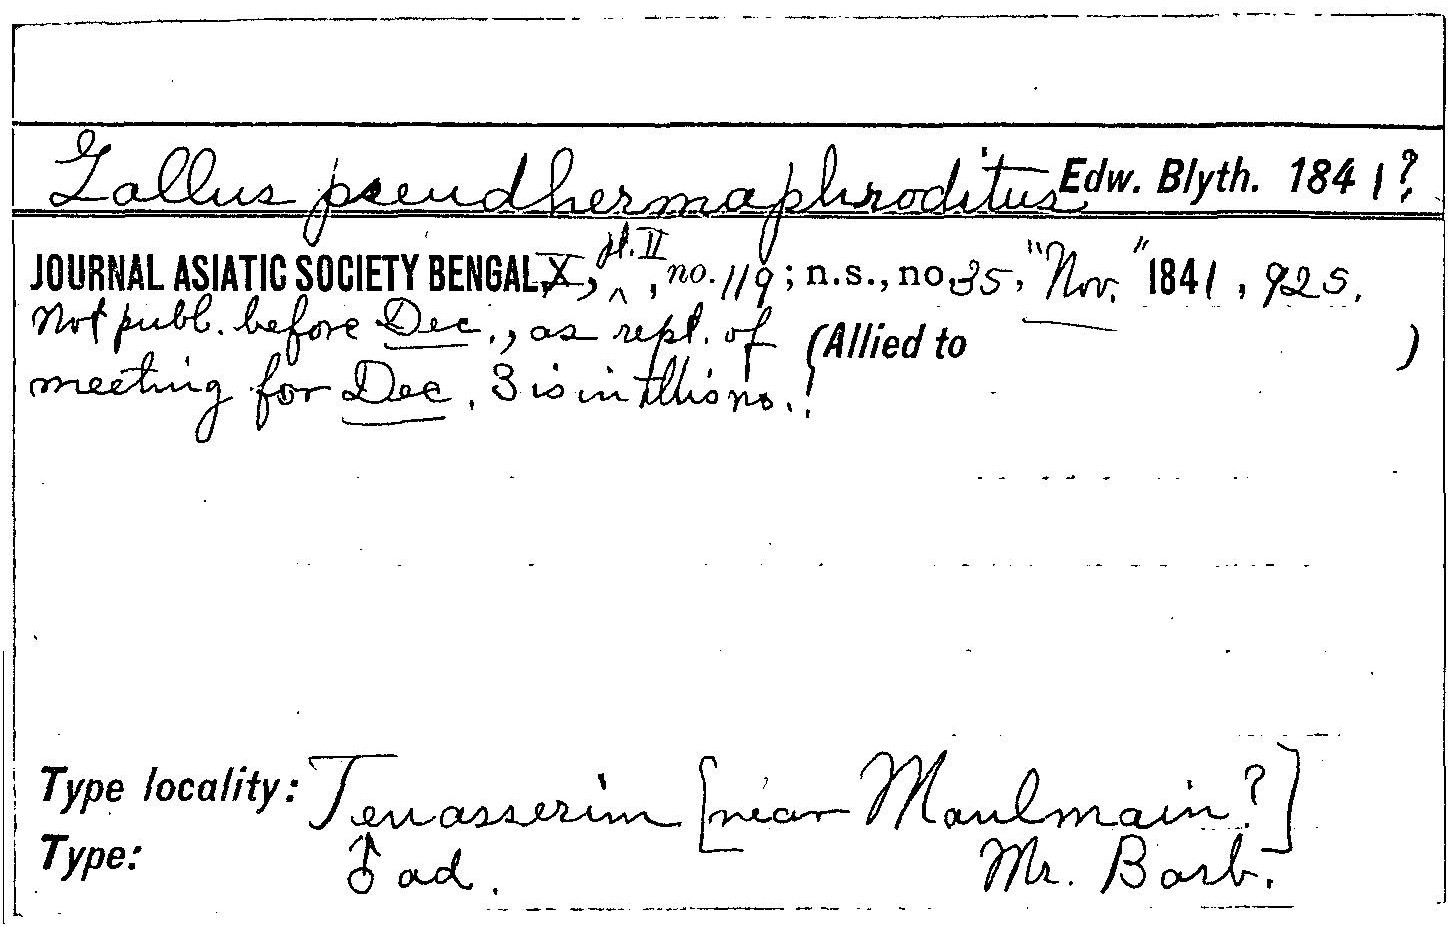 Gallus pseudhermaphroditus Edw. Blyth. 1841?
JOURNAL ASIATIC SOCIETY BENGAL, X, pt. II, no. 119; n.s., no 35, "Nov." 1841, 925.
Not publ. before Dec., as rept. of (Allied to )
meeting for Dec. 3 is in this no.!
Type locality: Tenasserim [near Maulmain?]
Type: ♂ ad. Mr. Barb.